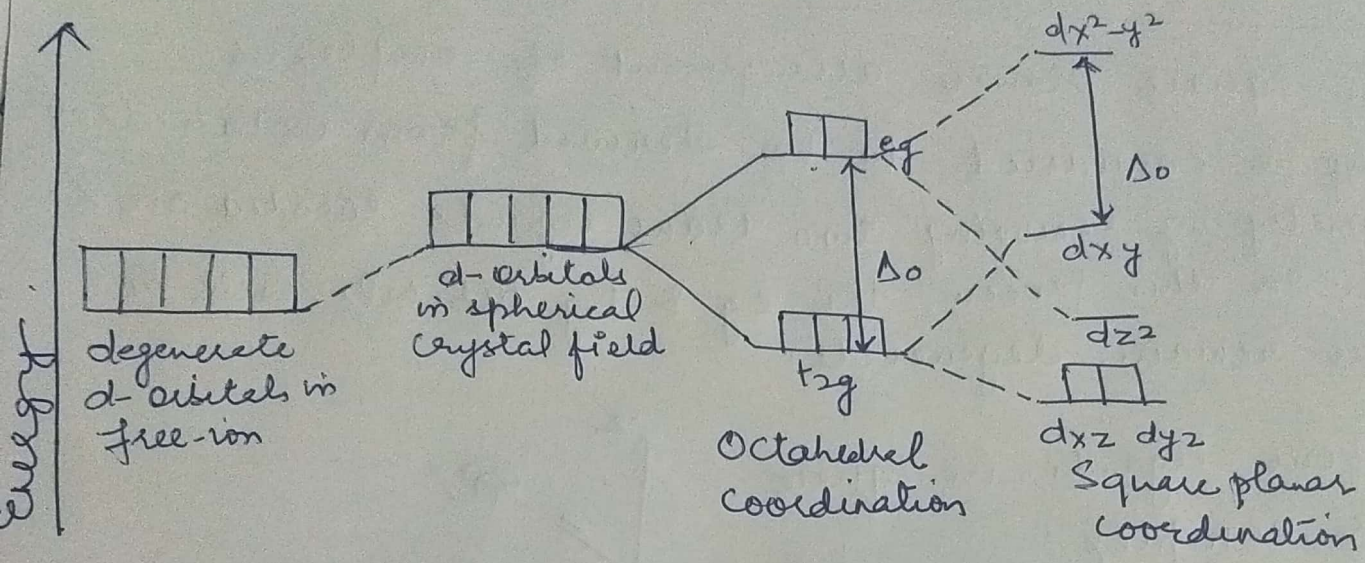 Energy
degenerate
d-orbitals in
free-ion
d-orbitals
in spherical
crystal field
eg
Δo
t2g
Octahedral
coordination
dx²-y²
Δo
dxy
dz²
dxz dyz
Square planar
coordination